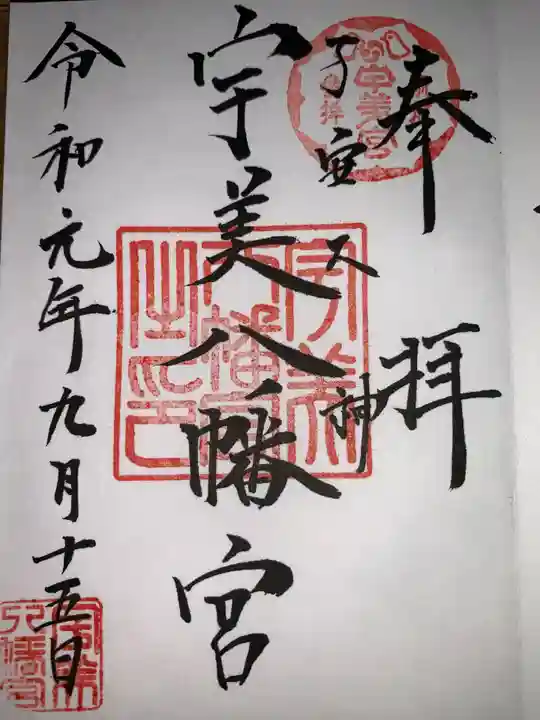 奉拝
子安大神
宇美八幡宮
令和元年九月十五日
宇美八幡宮之印
宇美宮
宇美八幡宮